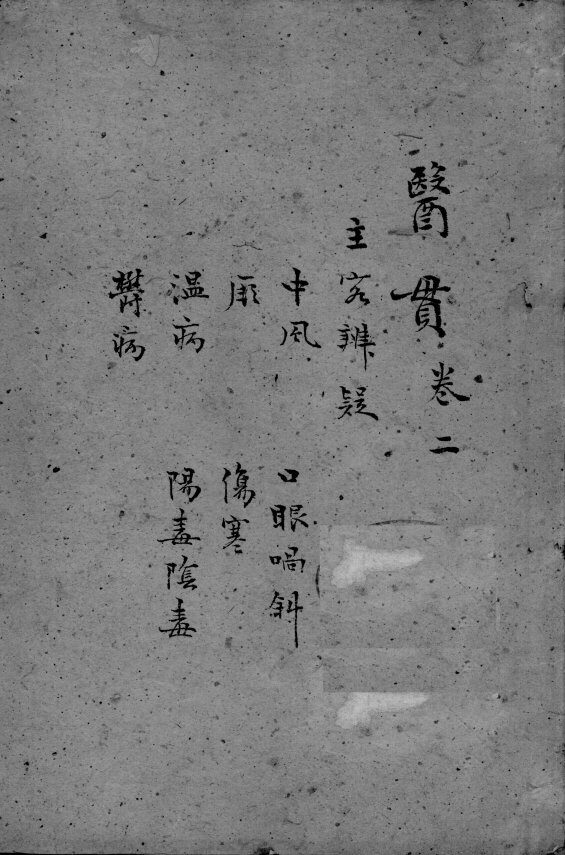 醫貫卷二
主客辨疑
中風 口眼喎斜
厥 傷寒
温病 陽毒陰毒
欝病